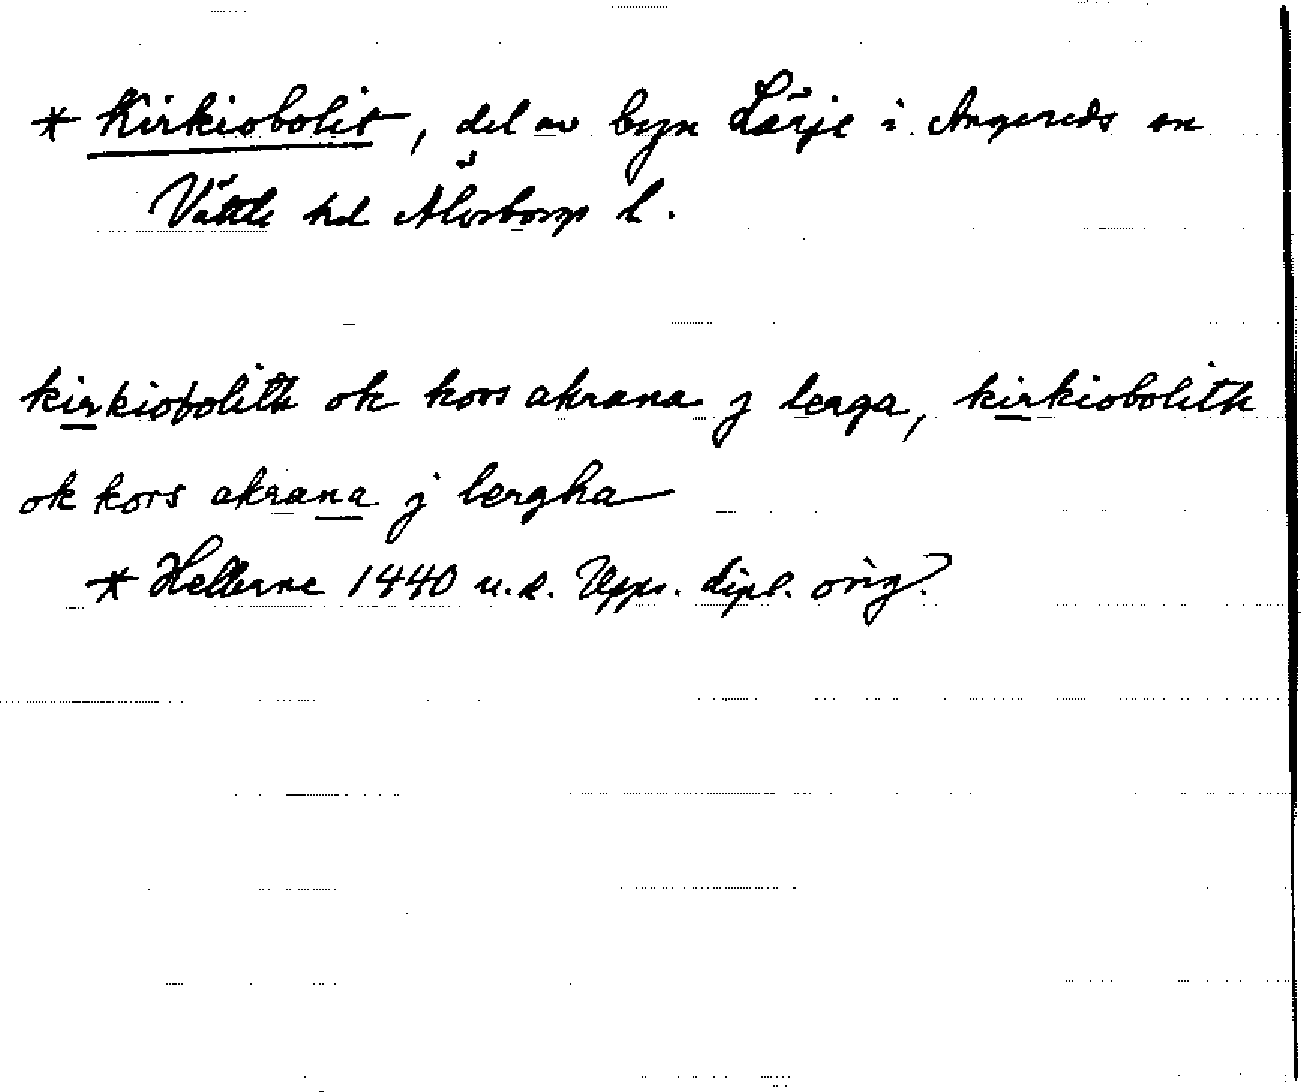 * Kirkiobolit, del av byn Lärje i Angereds sn
Vättle hd Älvsborgs l.
kirkiobolith ok kors akrana j lerga, kirkiobolith
ok kors akrana j lergha
* Hellerne 1440 u.d. Upps. dipl. orig.